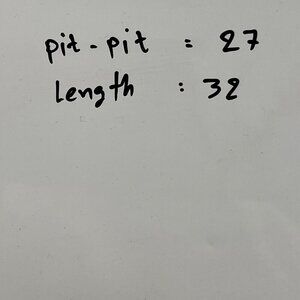 pit - pit : 27
Length : 32